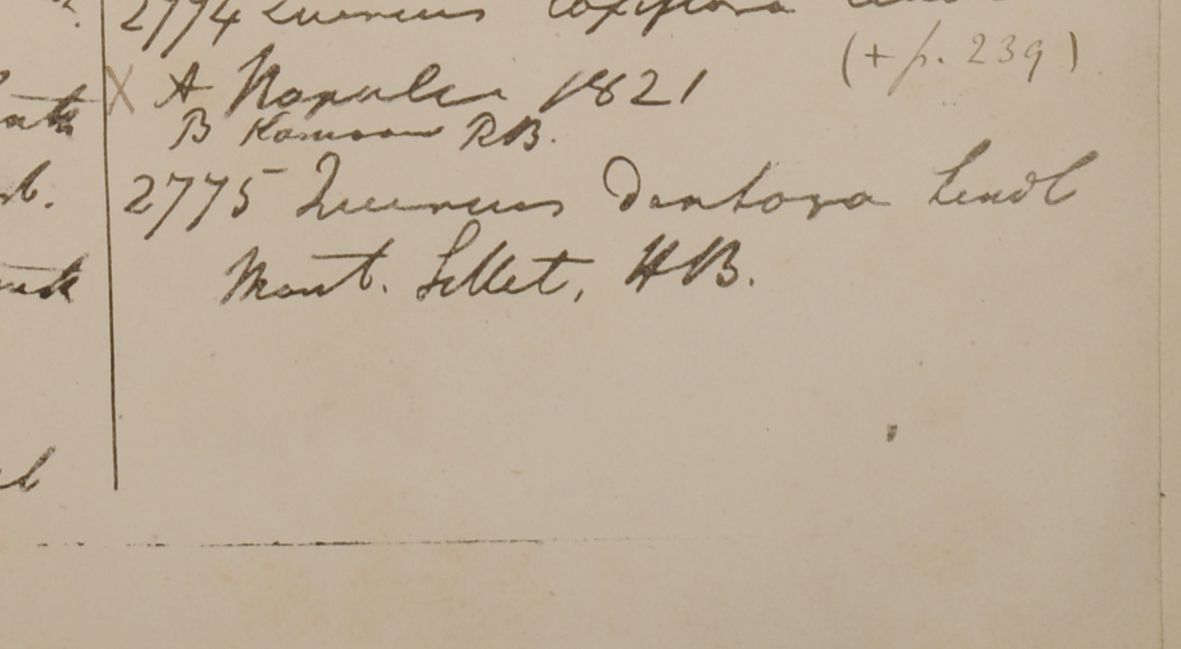 2774 Quercus laxiflora Lindl
(+ p. 239)
X A Napalia 1821
B Kamaon RB.
2775 Quercus Dentosa Lindl
Mont. Sillet, HB.